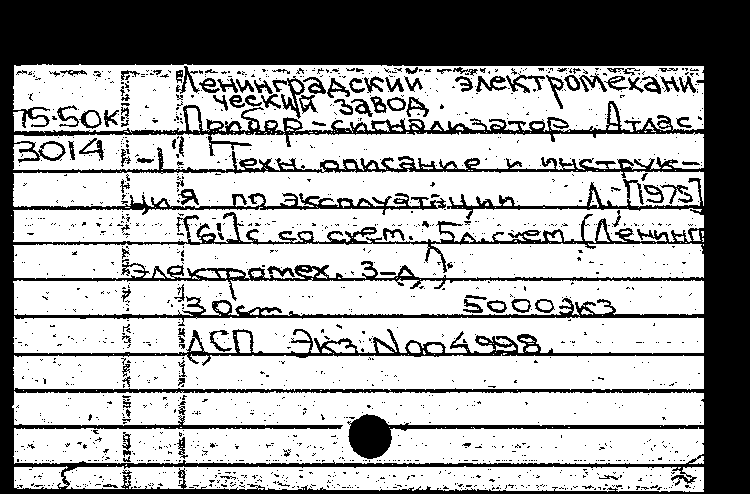 Ленинградский электромехани-
ческий завод.
75-50к Прибор-сигнализатор „Атлас
3014 -1". Техн. описание и инструк-
ция по эксплуатации. Л., [1975]
[61]с. со схем., 5л. схем. (Ленингр
электромех. з-д)
30 экз 5000экз
ДСП. Экз. №004998.